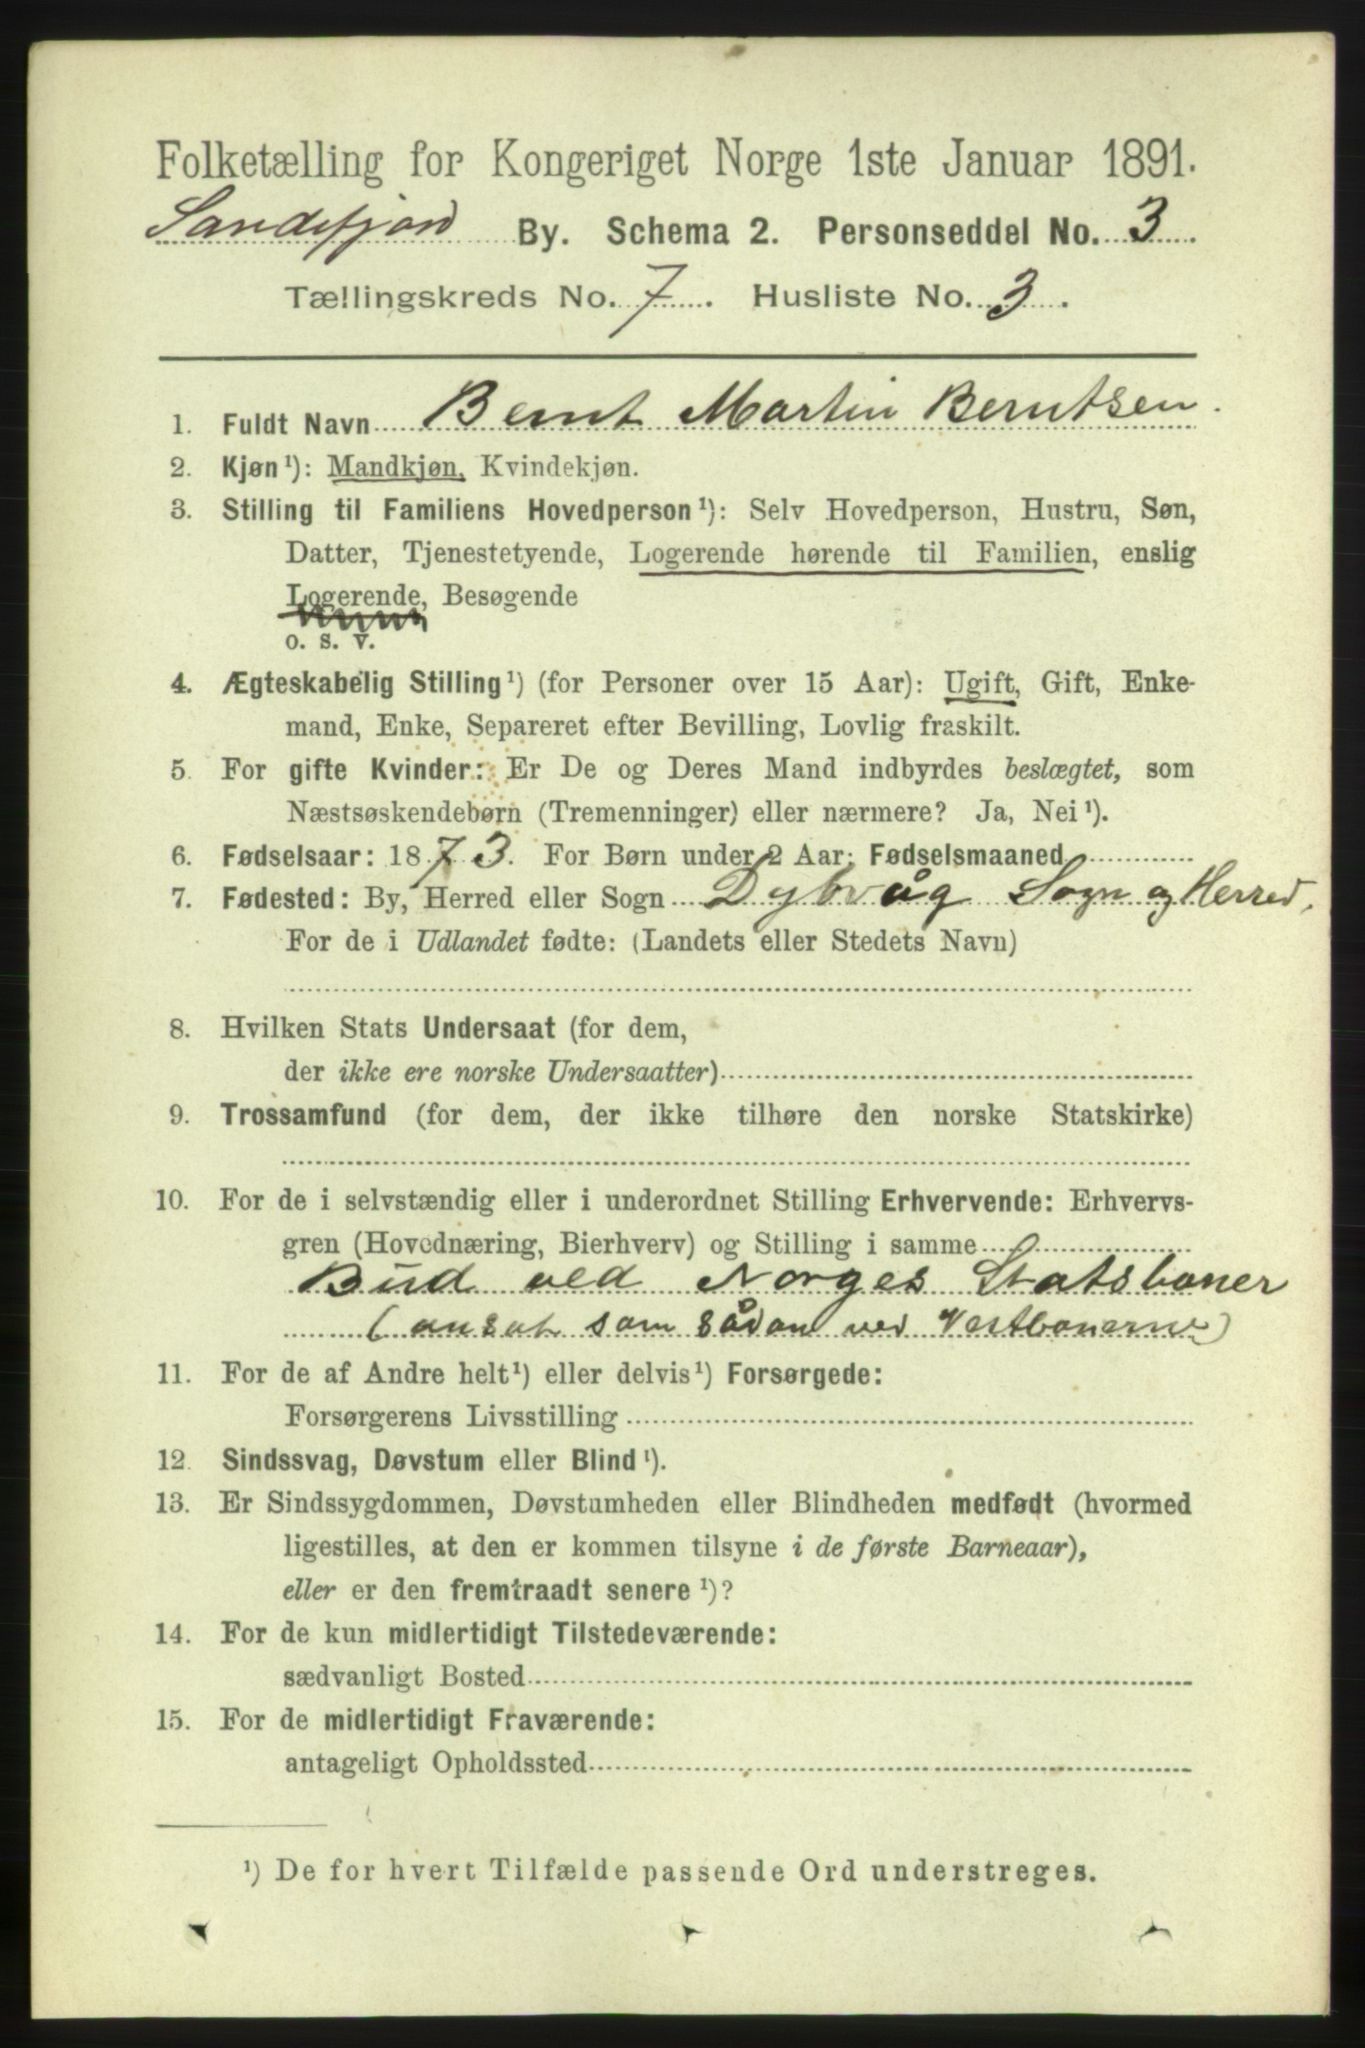 Folketælling for Kongeriget Norge 1ste Januar 1891.
Sandefjord By. Schema 2. Personseddel No. 3.
Tællingskreds No. 7. Husliste No. 3.
1. Fuldt Navn Bernt Martin Berntsen.
2. Kjøn ¹): Mandkjøn, Kvindekjøn.
3. Stilling til Familiens Hovedperson ¹): Selv Hovedperson, Hustru, Søn,
Datter, Tjenestetyende, Logerende hørende til Familien, enslig
Logerende, Besøgende
o. s. v.
4. Ægteskabelig Stilling ¹) (for Personer over 15 Aar): Ugift, Gift, Enke-
mand, Enke, Separeret efter Bevilling, Lovlig fraskilt.
5. For gifte Kvinder: Er De og Deres Mand indbyrdes beslægtet, som
Næstsøskendebørn (Tremenninger) eller nærmere? Ja, Nei ¹).
6. Fødselsaar: 1873. For Børn under 2 Aar: Fødselsmaaned
7. Fødested: By, Herred eller Sogn Dybvåg Sogn og Herred,
For de i Udlandet fødte: (Landets eller Stedets Navn)
8. Hvilken Stats Undersaat (for dem,
der ikke ere norske Undersaatter)
9. Trossamfund (for dem, der ikke tilhøre den norske Statskirke)
10. For de i selvstændig eller i underordnet Stilling Erhvervende: Erhvervs-
gren (Hovednæring, Bierhverv) og Stilling i samme
Bud ved Norges Statsbaner
(ansat som sådan ved Vestbanerne)
11. For de af Andre helt ¹) eller delvis ¹) Forsørgede:
Forsørgerens Livsstilling
12. Sindssvag, Døvstum eller Blind ¹).
13. Er Sindssygdommen, Døvstumheden eller Blindheden medfødt (hvormed
ligestilles, at den er kommen tilsyne i de første Barneaar),
eller er den fremtraadt senere ¹)?
14. For de kun midlertidigt Tilstedeværende:
sædvanligt Bosted
15. For de midlertidigt Fraværende:
antageligt Opholdssted
¹) De for hvert Tilfælde passende Ord understreges.